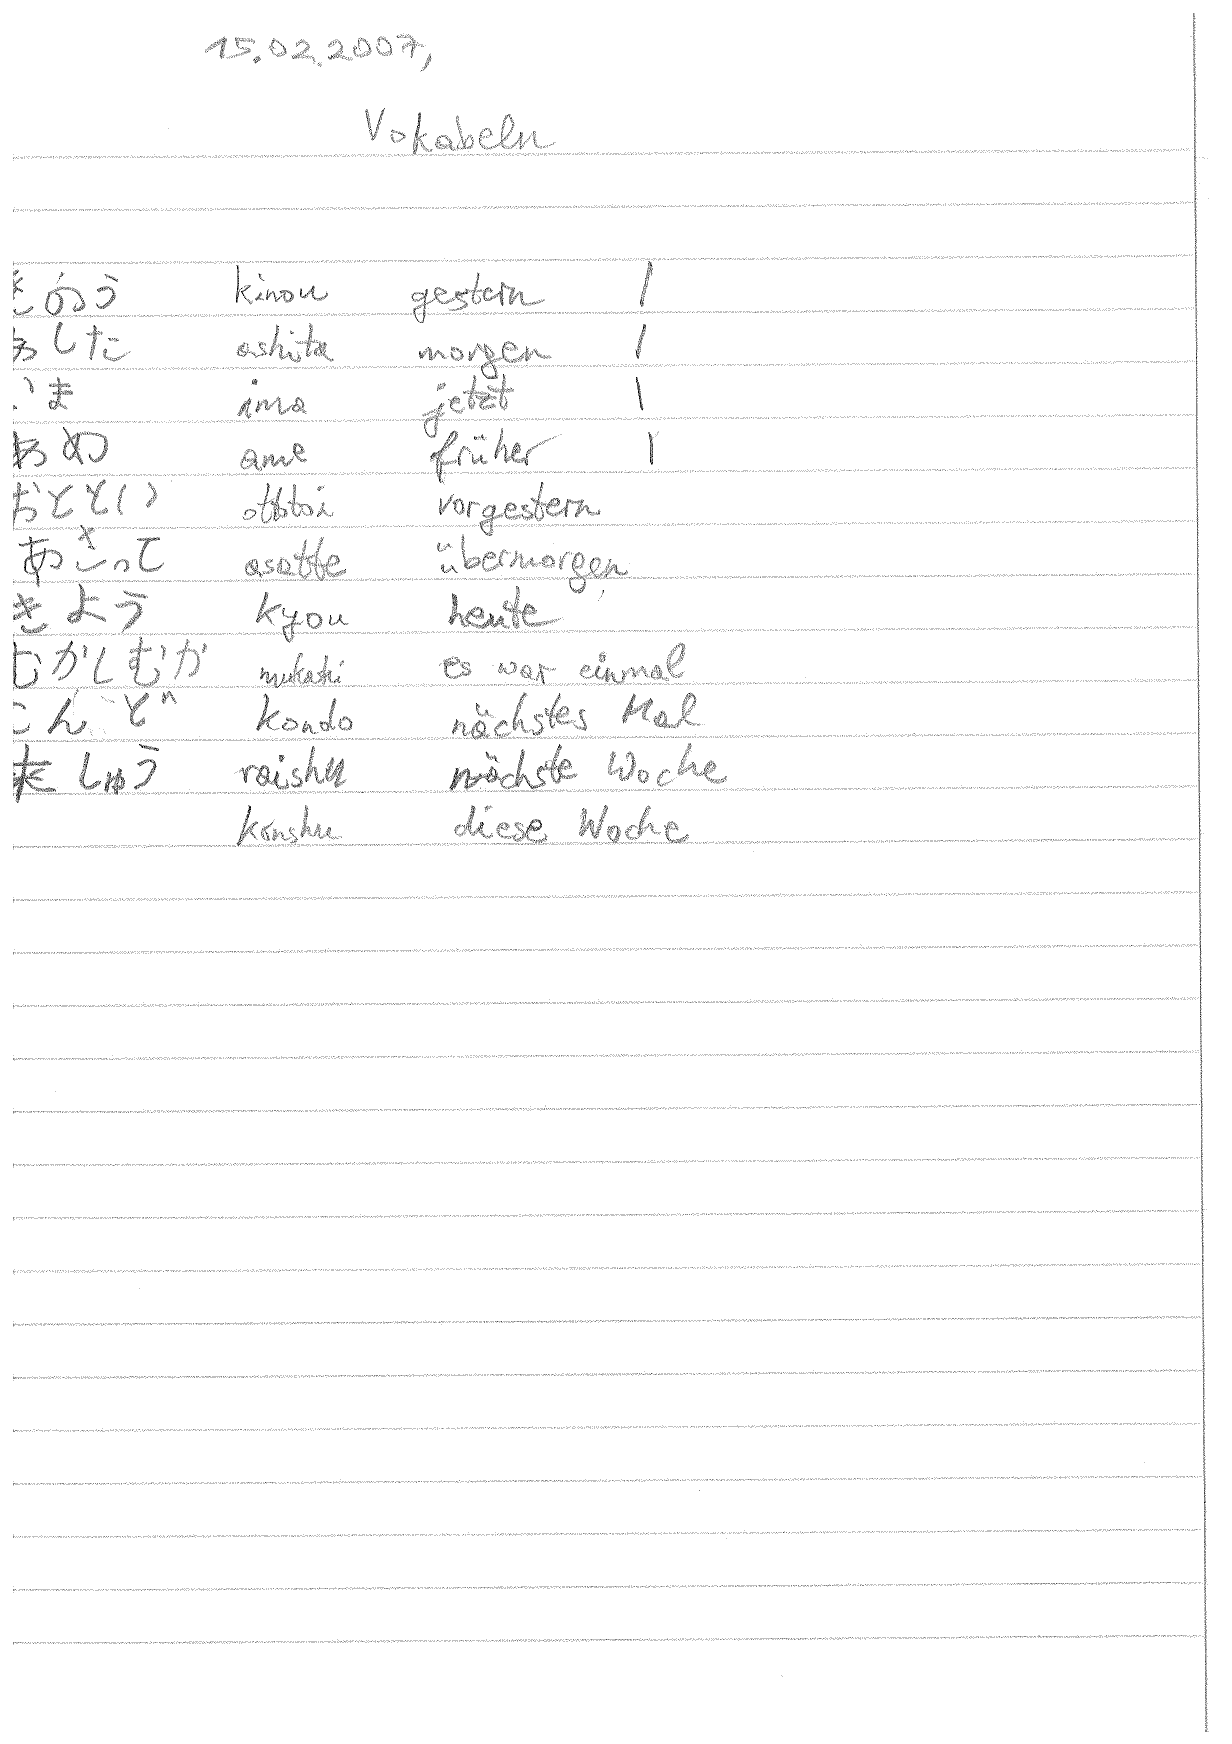 15.02.2007,
Vokabeln
きのう kinou gestern |
あした ashita morgen |
いま ima jetzt |
あめ ame früher |
おととい ottotoi vorgestern
あさって asatte übermorgen
きよう kyou heute
むかしむか es war einmal
こんど kondo nächstes Mal
来しゅう raishu nächste Woche
konshu diese Woche